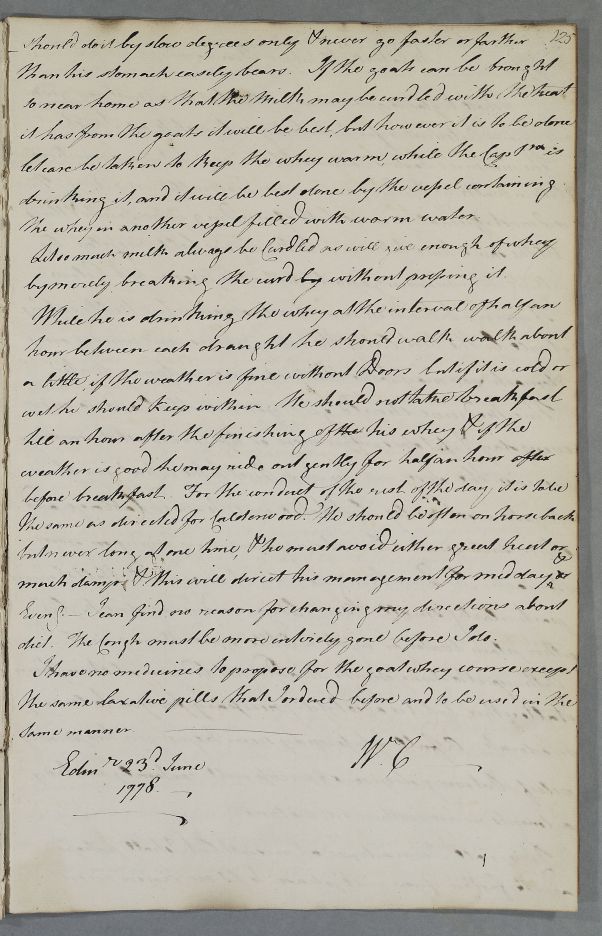 125
should do it by slow degrees only & never go faster or farther
than his stomach easely bears. If the goats can be brought
so near home as that the Milk may be curdled with the heat
it has from the goats it will be best, but however it is to be done
let care be taken to keep the whey warm while the Capt.n is
drinking it, and it will be best done by the vessel containing
the whey in another vessel filled with warm water
Let so much milk always be Curdled as will give enough of whey
by merely breaking the curd by without pressing it.
While he is drinking the whey at the interval of half an
hour between each draught he should walk walk about
a little, if the weather is fine without Doors but if it is cold or
wet he should keep within. He should not take breakfast
till an hour after the finishing of the his whey & if the
weather is good he may ride out gently for half an hour after
before breakfast. For the conduct of the rest of the day it is to be
the same as directed for Calderwood. He should be often on horseback
but never long at one time, & he must avoid either great heat or
much damp & this will direct his management for mid day or
Eveng. - I can find no reason for changing my directions about
diet. The Cough must be more entirely gone before I do.
I have no medicines to propose for the goat whey course except
the same laxative pills that I ordered before and to be used in the
same manner
Edinr 23d. June W. C
1778.